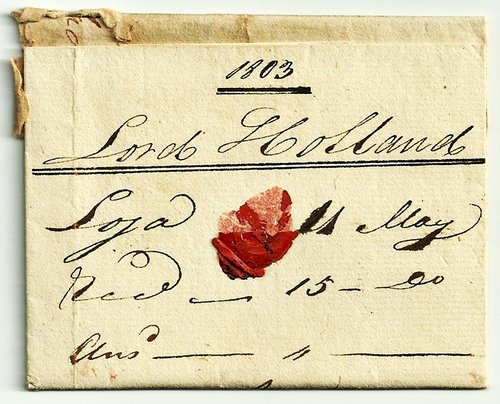 1803
Lord Holland
Loja 11 May
Recd — 15 — Do
Ansd — " —